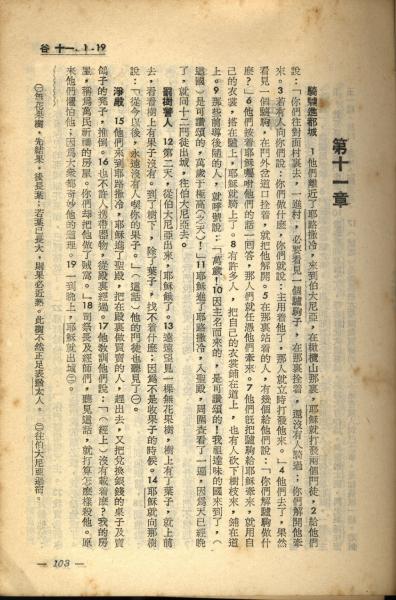 谷 十一 1-19
第十一章
騎驢進都城　1他們離近了耶路撒冷，來到伯大尼亞，在橄欖山那裏，耶穌就打發兩個門徒，2給他們
說：「你們往對面村裏去，一進村，必要看見一個驢駒子，在那裏拴着，還沒有人騎過；你們解開他牽
來。3若有人向你們說：你們做什麼，你們就說：主用着他了。那人就立時打發他來。」4他們去了，果然
看見一個驢駒，在門外岔道上拴着，就把他解開。5在那裏站着的人，有幾個給他們說：「你們解驢駒做什
麼？」6他們按着耶穌囑咐他們的話一回答，那人們就任憑他們牽來。7他們既把驢駒給耶穌牽來，就用自
己的衣裳，搭在驢上，耶穌就騎上了。8有許多人，把自己的衣裳鋪在道上，也有人砍下樹枝來，鋪在道
上。9那些前導後隨的人，就呼號說：「萬歲！10因主名而來的，是可讚頌的！我祖達味的國來到了，（
這國）是可讚頌的，萬歲于極高（之天）！」11耶穌進了耶路撒冷，入聖殿，周圍查看了一遍，因爲天已經晚
了，就同十二門徒出城，往伯大尼亞去。
罰樹警人　12第二天，從伯大尼亞出來，耶穌餓了。13遠遠望見一棵無花果樹，樹上有了葉子，就上前
去，看看樹上有果子沒有。到了樹下，除了葉子，找不着什麼；因爲不是收果子的時候。14耶穌就向那樹
說：「從今以後，永遠沒有人喫你的果子。」（這話）他的門徒也聽見了㊀。
淨殿　15他們來到耶路撒冷，耶穌進了聖殿，把在殿裏做買賣的人，趕出去，又把兌換銀錢的桌子及賣
鴿子的凳子，推倒。16也不許人携帶器物，從殿裏經過。17他教訓他們說：「（經上）沒有載着麼？我的房
屋，稱爲萬民祈禱的房屋。你們却把他做了賊窩。」18司祭長及經師們，聽見這話，就打算怎麼樣殺他。原
來他們懼怕他；因爲大衆都奇妙他的道理。19一到晚上，耶穌就出城㊁。
㊀無花果樹，先結果，後長葉，若葉已長大，則果必近熟。此樹不然正足表明猶太人。㊁往伯大尼亞過宿。
— 103 —